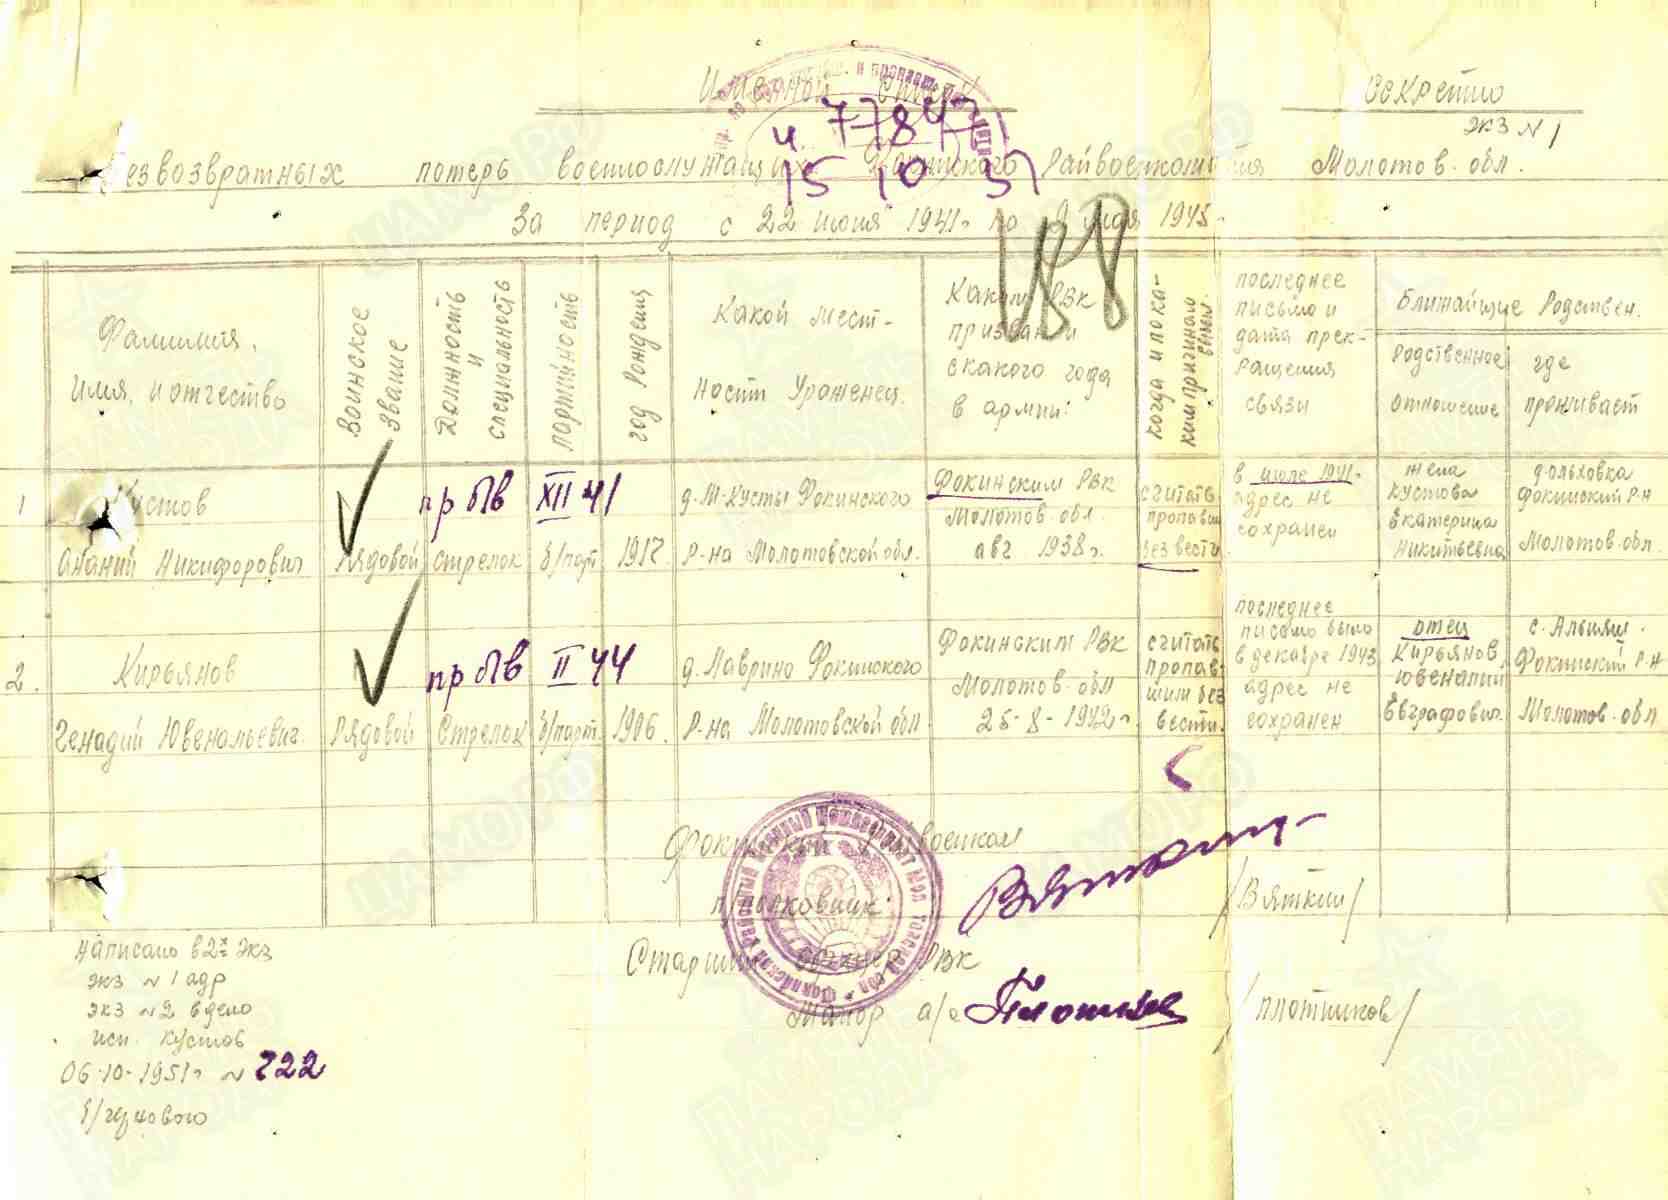 Именной список
Секретно
экз № 1
безвозвратных потерь военнослужащих Фокинского Райвоенкомата Молотов. обл.
За период с 22 июня 1941г по 9 мая 1945г
и. 77847
15 10 51
188
Фамилия, имя, и отчество
Воинское звание
Должность и специальность
Портийность
год Рождения
Какой местности Уроженец.
Каким РВк призван и с какого года в армии:
когда и по каким причинам выбыл.
последнее письмо и дата прекращения связи
Ближайшие Родствен.
Родственное отношение
где проживает
1 Кустов Ананий Никифорович
Рядовой
пр б/в XII 41
стрелок б/парт 1917г
д. М-Кусты Фокинского Р-на Молотовской обл.
Фокинским РВК Молотов. обл. авг 1938г.
считать пропавш без вести
в июле 1941г адрес не сохранен
жена Кустова Екатерина Никитьевна
д. ольховка Фокинский Р-н Молотов. обл
2. Кирьянов Генадий Ювенальевич.
Рядовой
пр б/в II 44
Стрелок б/парт. 1906г.
д. Лаврино Фокинского Р-на Молотовской обл
Фокинским РВК Молотов. обл 25-8-1942г
считать пропавшим без вести.
последнее письмо было в декабре 1943 адрес не сохранен
отец Кирьянов Ювеналий Евграфович.
с. Альняш. Фокинский Р-н Молотов. обл
Фокинский Райвоенком
п/полковник:
/Вяткин/
Старший офицер РВК
Майор а/с
/Плотников/
Написано в 2х экз
экз № 1 адр
экз № 2 в дело
исп. Кустов
06-10-1951г № 722
б/чернового
ПАМЯТЬ НАРОДА
ЦАМО РФ